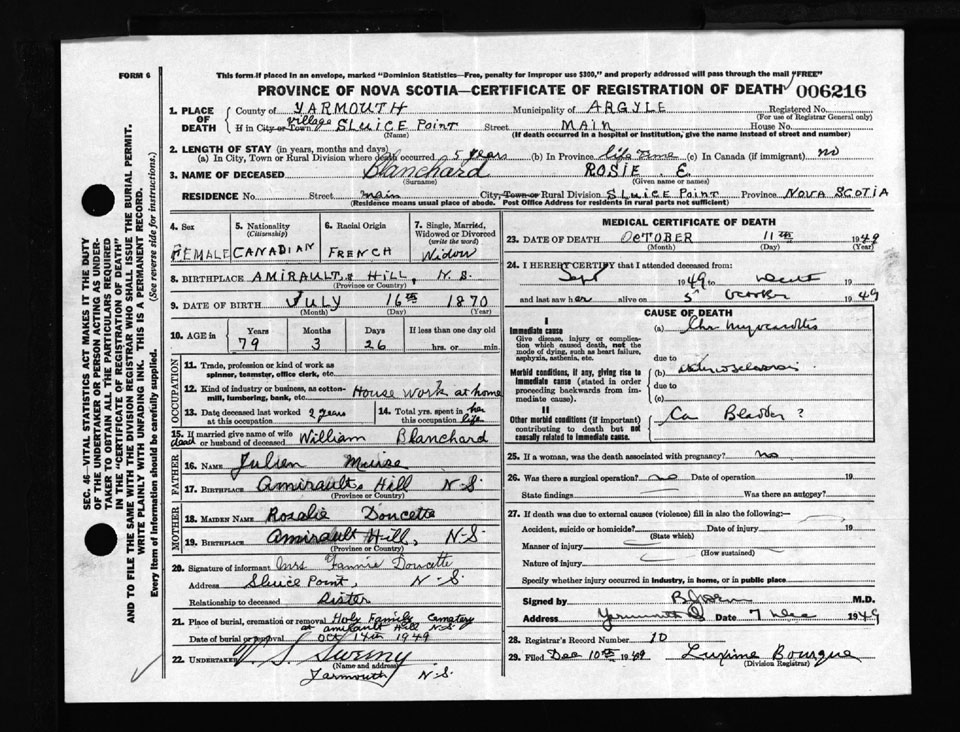 FORM 6
This form if placed in an envelope, marked "Dominion Statistics—Free, penalty for improper use $300," and properly addressed will pass through the mail "FREE"
PROVINCE OF NOVA SCOTIA—CERTIFICATE OF REGISTRATION OF DEATH 006216
1. PLACE OF DEATH County of YARMOUTH Municipality of ARGYLE Registered No.
(For use of Registrar General only)
If in City or Town Village SLUICE POINT Street MAIN House No.
(Name) (If death occurred in a hospital or institution, give the name instead of street and number)
2. LENGTH OF STAY (in years, months and days)
(a) In City, Town or Rural Division where death occurred 5 years (b) In Province life time (c) In Canada (if immigrant) no
3. NAME OF DECEASED Blanchard ROSIE E.
(Surname) (Given name or names)
RESIDENCE No. Street main City, Town or Rural Division SLUICE POINT Province NOVA SCOTIA
(Residence means usual place of abode. Post Office Address for residents in rural parts not sufficient)
4. Sex 5. Nationality (Citizenship) 6. Racial Origin 7. Single, Married, Widowed or Divorced (write the word)
FEMALE CANADIAN FRENCH Widow
8. BIRTHPLACE AMIRAULT,S HILL, N.S.
(Province or Country)
9. DATE OF BIRTH JULY 16th 1870
(Month) (Day) (Year)
10. AGE in Years Months Days If less than one day old
79 3 26 hrs. or min.
OCCUPATION
11. Trade, profession or kind of work as spinner, teamster, office clerk, etc.
12. Kind of industry or business, as cotton-mill, lumbering, bank, etc. House work at home
13. Date deceased last worked at this occupation 2 years 14. Total yrs. spent in this occupation her life
15. If married give name of wife or husband of deceased William Blanchard
FATHER
16. NAME Julien Muise
17. BIRTHPLACE Amirault, Hill N.S.
(Province or Country)
MOTHER
18. MAIDEN NAME Rosalie Doucette
19. BIRTHPLACE Amirault Hill, N.S.
(Province or Country)
20. Signature of informant Mrs Fannie Doucette
Address Sluice Point, N.S.
Relationship to deceased Sister
21. Place of burial, cremation or removal Holy Family Cemetery
at Amirault Hill N.S.
Date of burial or removal Oct 14th 1949
22. UNDERTAKER S. Sweeny
(Name and address)
Yarmouth N.S.
MEDICAL CERTIFICATE OF DEATH
23. DATE OF DEATH OCTOBER 11th 1949
(Month) (Day)
24. I HEREBY CERTIFY that I attended deceased from:
Sept 1949 to Death 19
and last saw her alive on 5 October 1949
CAUSE OF DEATH
I
Immediate cause
Give disease, injury or complication which caused death, not the mode of dying, such as heart failure, asphyxia, asthenia, etc.
(a) Chr myocarditis
due to
Morbid conditions, if any, giving rise to immediate cause (stated in order proceeding backwards from immediate cause).
(b)
due to
(c)
II
Other morbid conditions (if important) contributing to death but not causally related to immediate cause.
Ca Bladder ?
25. If a woman, was the death associated with pregnancy? no
26. Was there a surgical operation? no Date of operation 19
State findings Was there an autopsy?
27. If death was due to external causes (violence) fill in also the following:—
Accident, suicide or homicide? Date of injury 19
(State which)
Manner of injury
(How sustained)
Nature of injury
Specify whether injury occurred in industry, in home, or in public place
Signed by M.D.
Address Yarmouth Date 7 Dec 1949
28. Registrar's Record Number 10
29. Filed Dec 10th 1949 Luxime Bourque
(Division Registrar)
SEC. 46—VITAL STATISTICS ACT MAKES IT THE DUTY
OF THE UNDERTAKER OR PERSON ACTING AS UNDER-
TAKER TO OBTAIN ALL THE PARTICULARS REQUIRED
IN THE "CERTIFICATE OF REGISTRATION OF DEATH"
AND TO FILE THE SAME WITH THE DIVISION REGISTRAR WHO SHALL ISSUE THE BURIAL PERMIT.
WRITE PLAINLY WITH UNFADING INK. THIS IS A PERMANENT RECORD.
Every item of information should be carefully supplied. (See reverse side for instructions.)